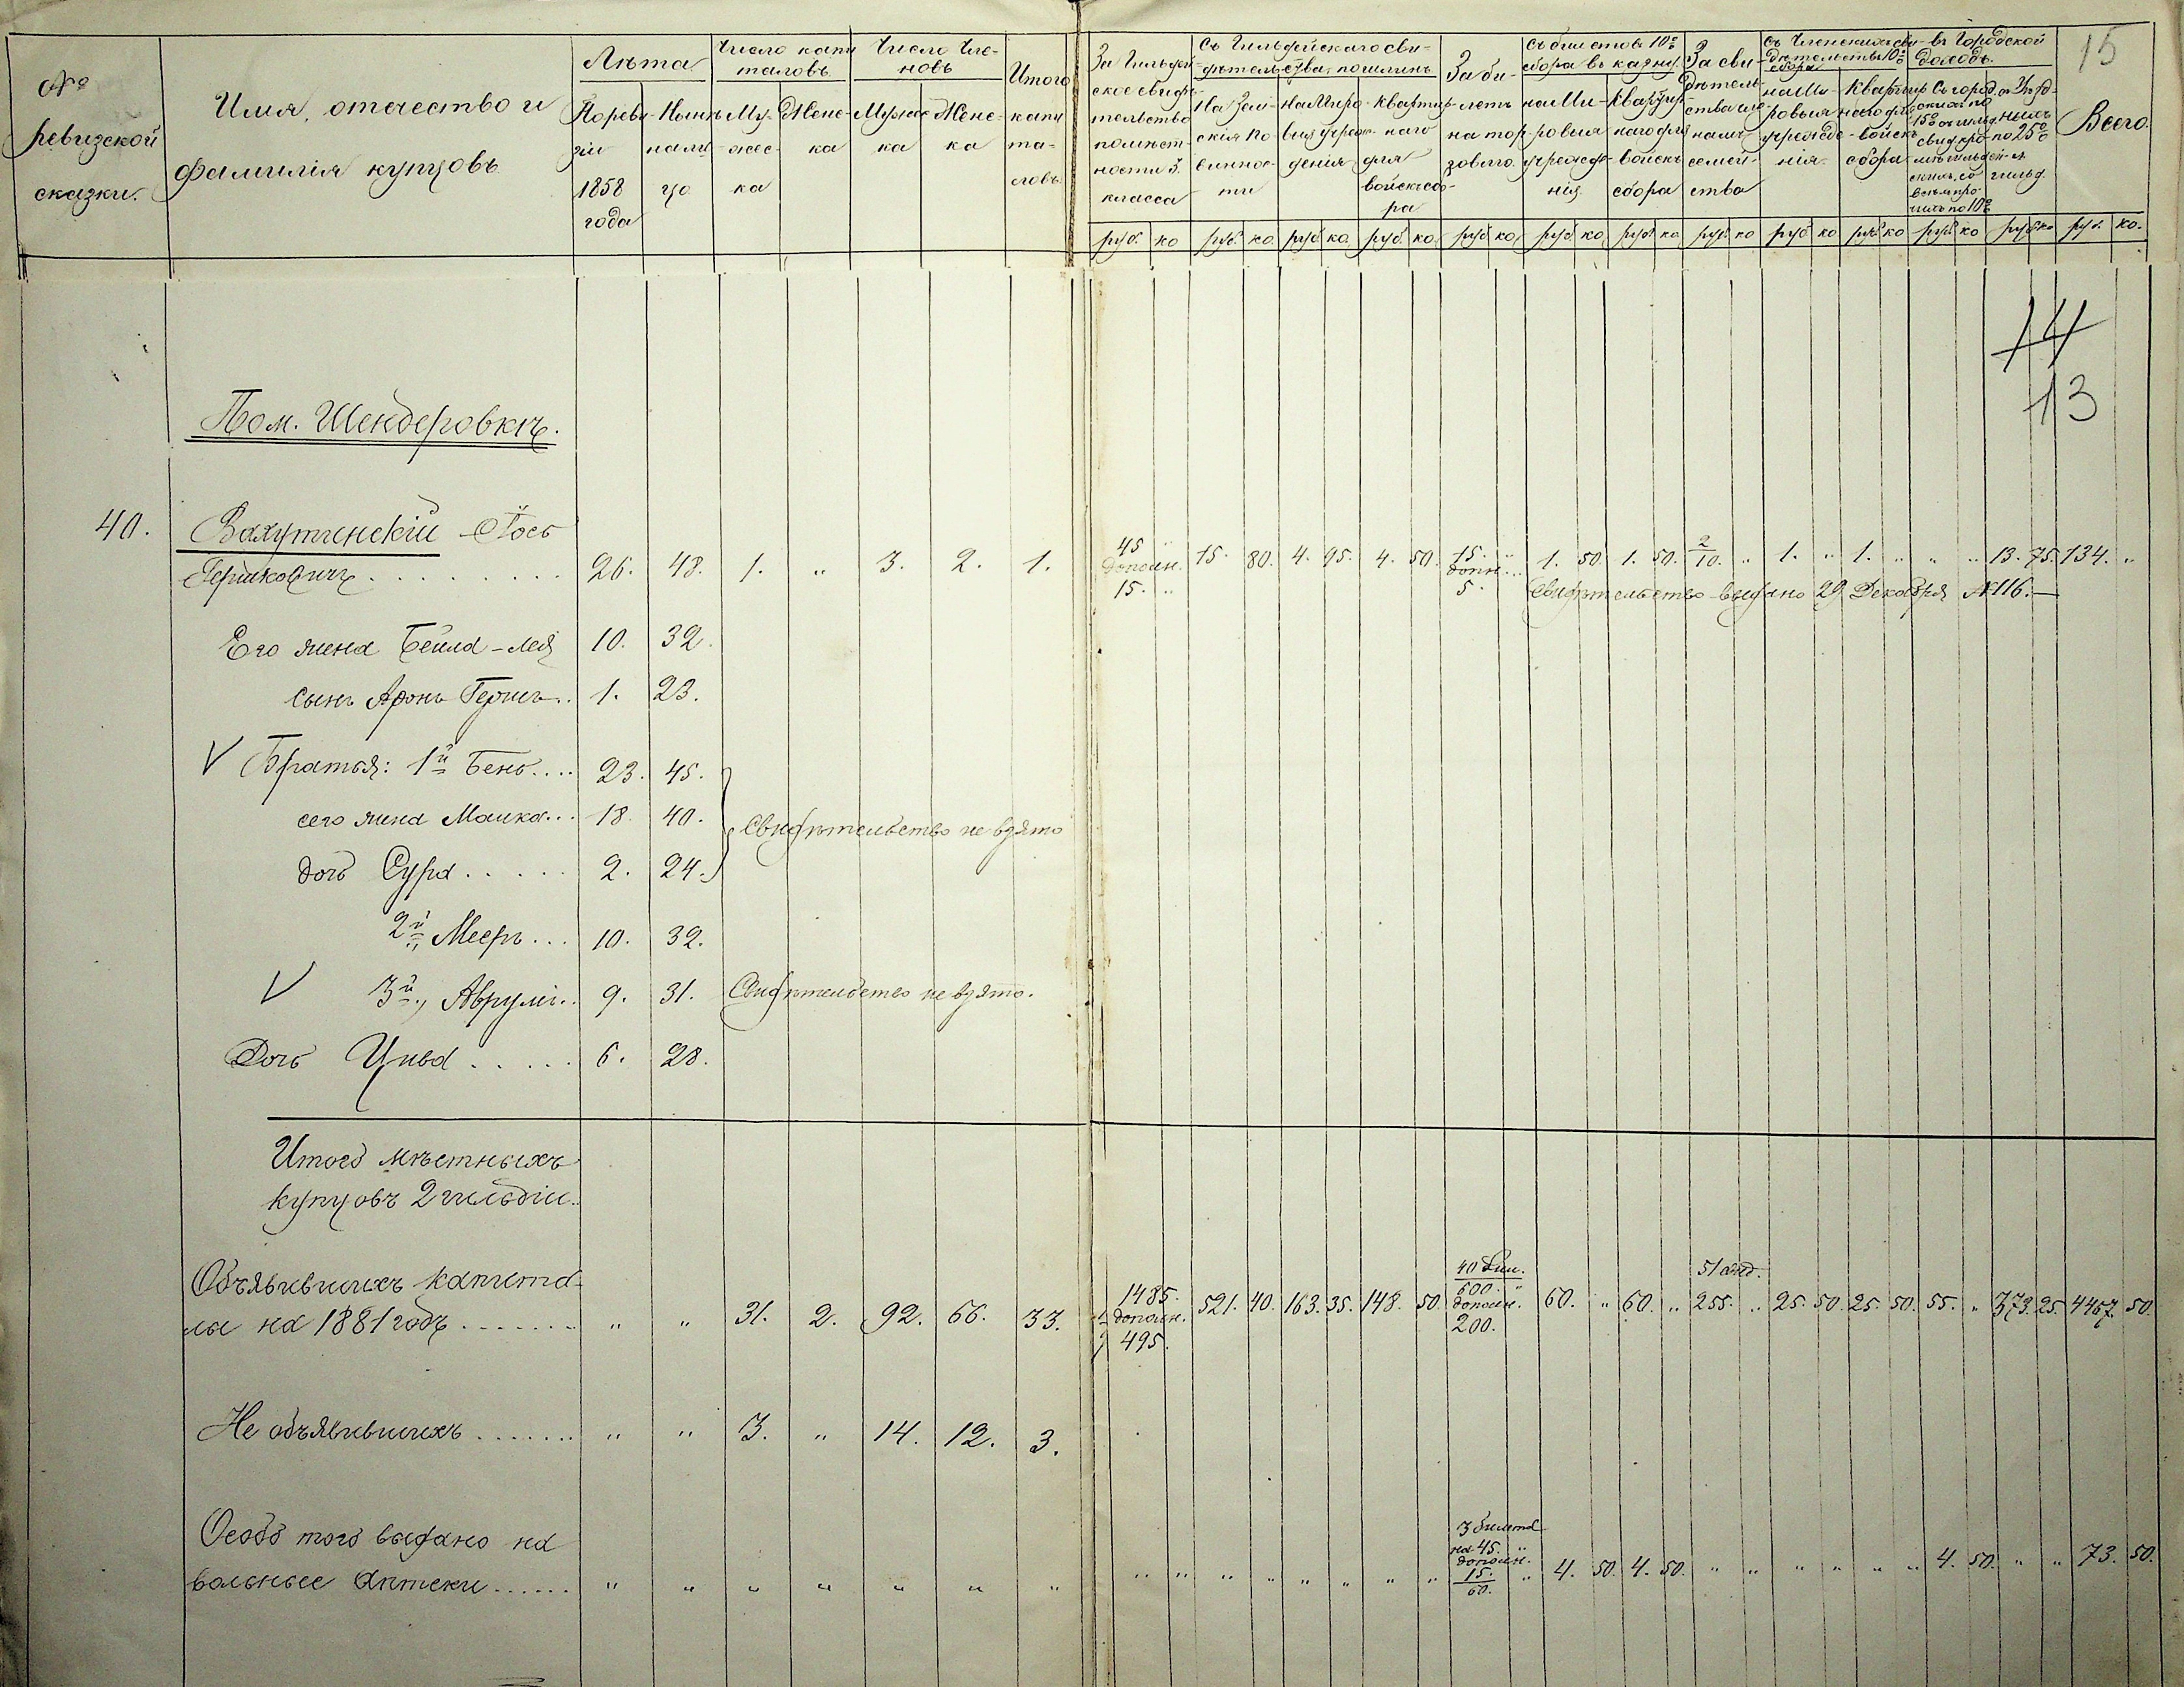 15
№ ревизской сказки.
Имя, отчество и фамилія купцовъ
Лѣта
По ревизіи 1858 года
Нынѣ на лицо
Число капиталовъ
Мужеска
Женска
Число членовъ
Мужеска
Женска
Итого капиталовъ
За гильдейское свидѣтельство по мѣстности 3. класса
Съ Гильдейскаго свидѣтельства, пошлинъ
На Земскія повинности
На Мировыя учрежденія
Квартирнаго для войскъ сбора
За билетъ на торговлю
Съ билетовъ 10% сбора въ казну
на Мировыя учрежденія
Квартирнаго для войскъ сбора
За свидѣтельства членамъ семейства
Съ Членскихъ свидѣтельствъ 10% сбора
на Мировыя учрежденія
Квартирнаго для войскъ сбора
въ Городской доходъ.
Всего
руб. ко руб. ко руб ко. руб. ко. руб ко. руб ко. руб. ко руб. ко руб ко руб. ко руб ко руб. ко руб. ко.
14
13
Пом. Шендеровкѣ.
40. Вахутинскій Іось
Гершковичъ . . . . 26. 48. 1. " 3. 2. 1. 45 " дополн. 15. " 15. 80. 4. 95. 4. 50. 15. " допол. 5. 1. 50. 1. 50. 2/10. " 1. " 1. " " " 13. 75. 134. "
Свидѣтельство выдано 29 Декабря №116.—
Его жена Бейла-Лея 10. 32.
сынъ Аронъ Гершъ.. 1. 23.
V Братья: 1й Бень.... 23. 45.
сего жена Малка... 18. 40. Свидѣтельство не взято
дочь Сура . . . . . 2. 24.
2й " Мееръ... 10. 32.
V 3й " Аврумъ.. 9. 31. Свидѣтельство не взято.
Дочь Цивя . . . . . 6. 28.
Итого мѣстныхъ
купцовъ 2 гильдіи..
Объявившихъ капита-
лы на 1881 годъ . . . . . . . " " 31. 2. 92. 66. 33. 1485. дополн. 495. 521. 40. 163. 35. 148. 50. 40 бил. 600. " дополн. 200. 60. " 60. " 51 свид. 255. " 25. 50. 25. 50. 55. " 373. 25. 4467. 50.
Не объявившихъ . . . . . . . " " 3. " 14. 12. 3.
Особо того выдано на
вольные аптеки . . . . . . " " " " " " " " " " " " " " " 3 билета на 45. " дополн. 15. 60. " 4. 50. 4. 50. " " " " " " 4. 50. " " 73. 50.